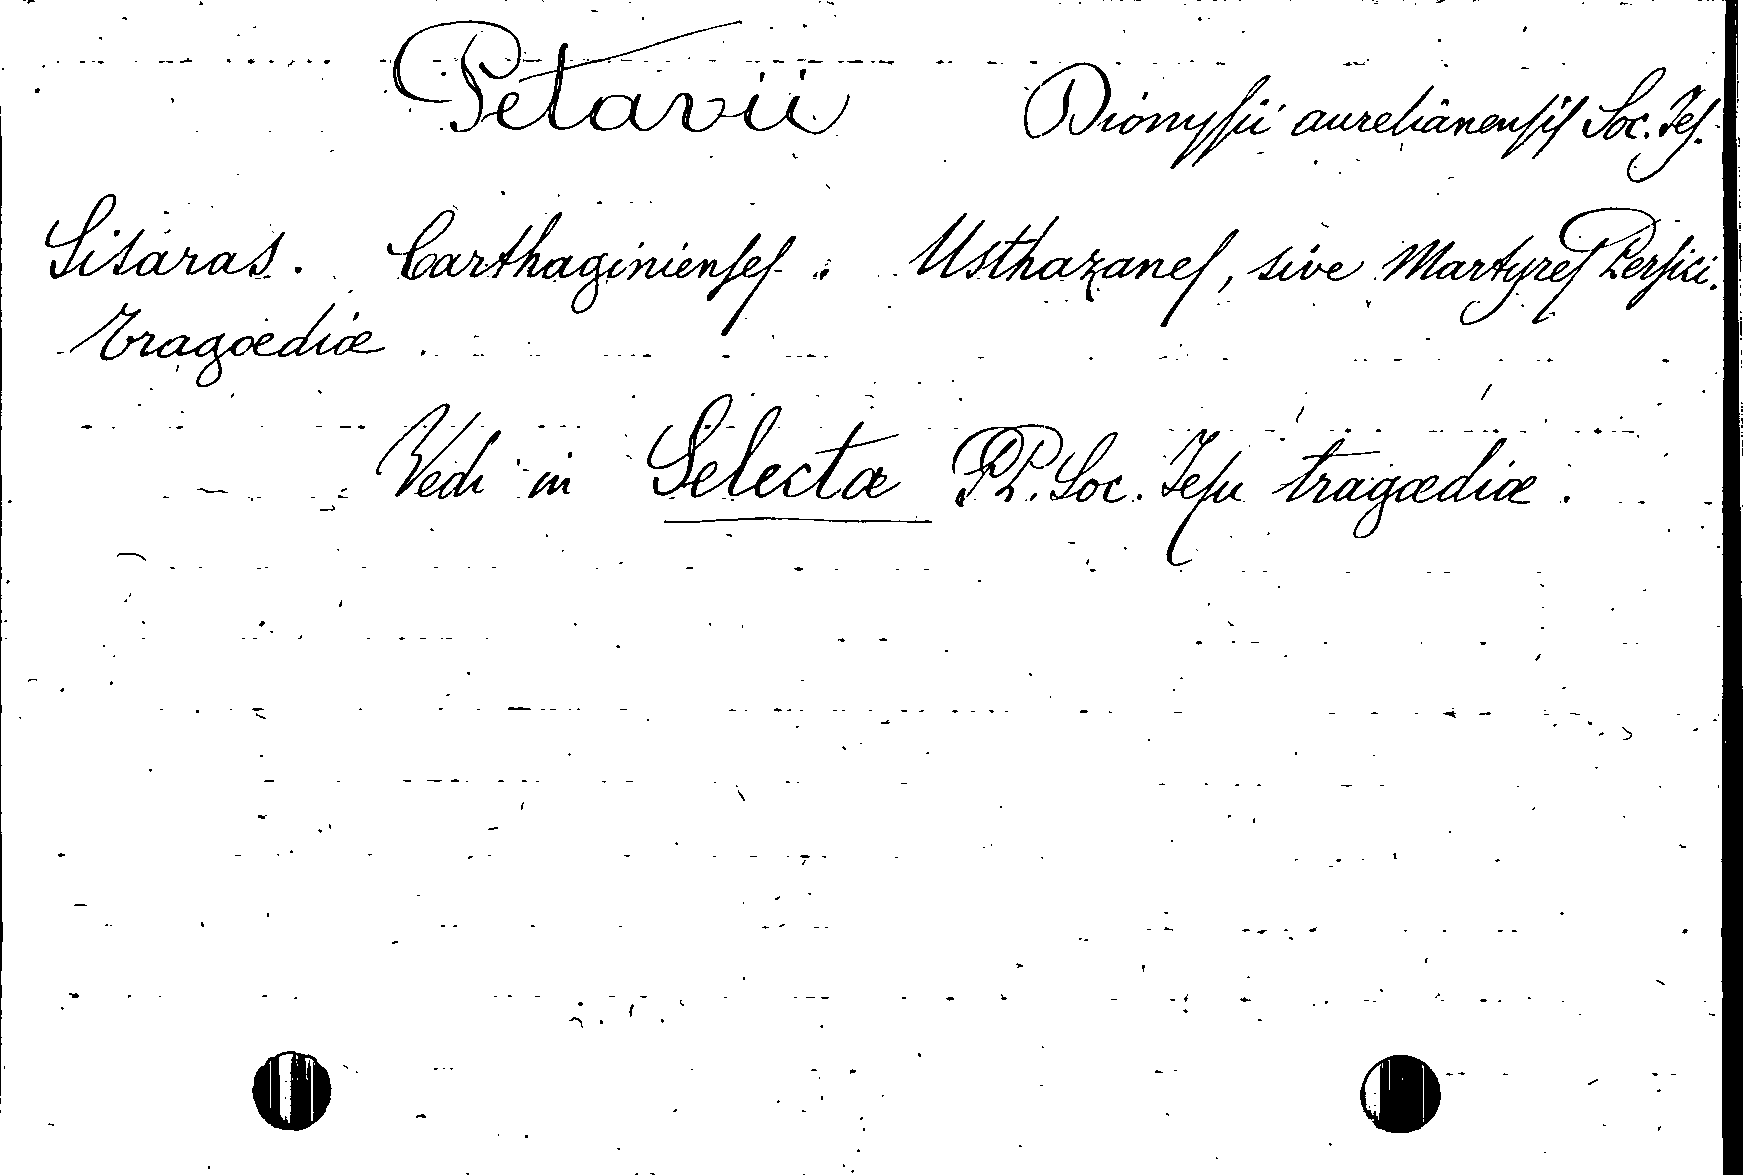 Petavii Dionysii aurelianensis Soc. Jes.
Sisaras. Carthaginienses. Usthazanes, sive Martyres Persici.
tragœdiæ
Vedi in Selectæ PP. Soc. Jesu tragœdiæ.